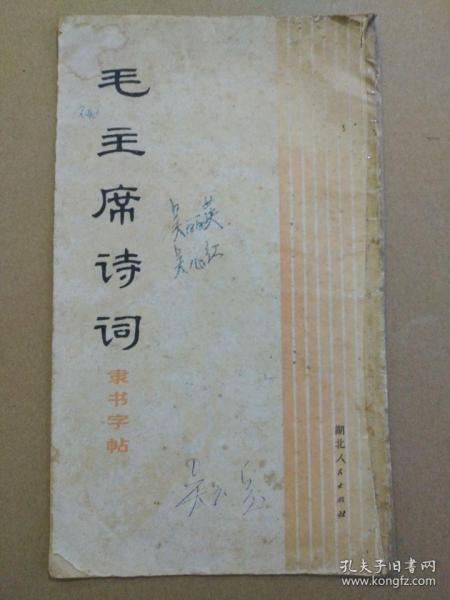 毛主席诗词
隶书字帖
吴丽英
吴
湖北人民出版社
孔夫子旧书网
www.kongfz.com